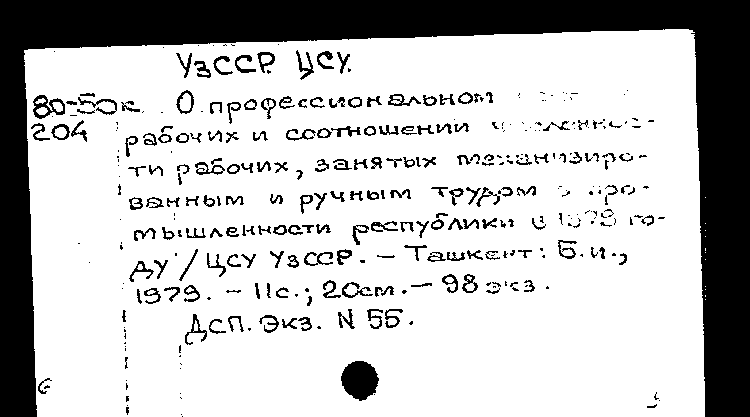 УзССР. ЦСУ.
80-50к О профессиональном
204 рабочих и соотношении численнос-
ти рабочих, занятых механизиро-
ванным и ручным трудом в про-
мышленности республики в 1979 го-
ду / ЦСУ УзССР. - Ташкент: Б.и.,
1979. - 11с.; 20см. - 98 экз.
ДСП. Экз. N 55.